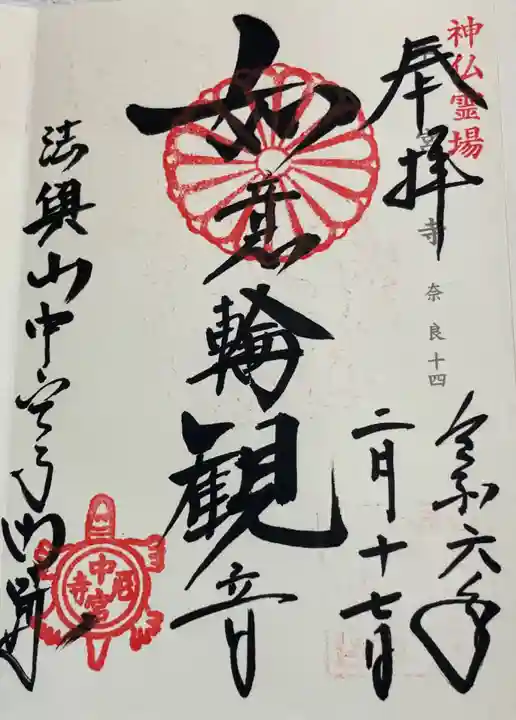 神仏霊場
奉拝
宮寺 奈良十四
令和六年
二月十七日
如意輪観音
法興山中宮寺門跡
中宮寺